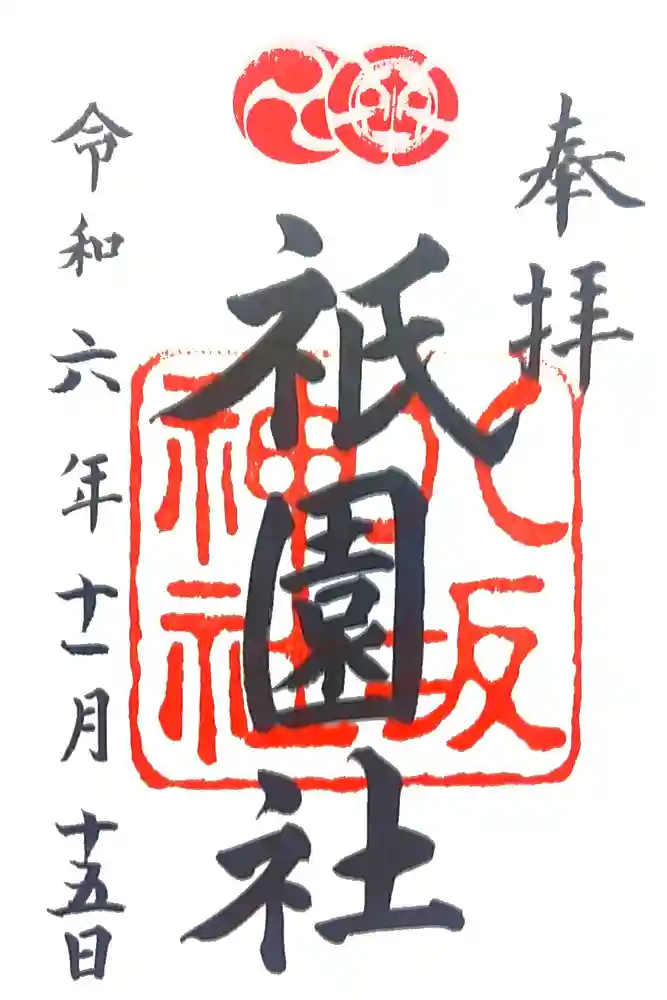 奉拝
祇園社
八坂神社
令和六年十一月十五日